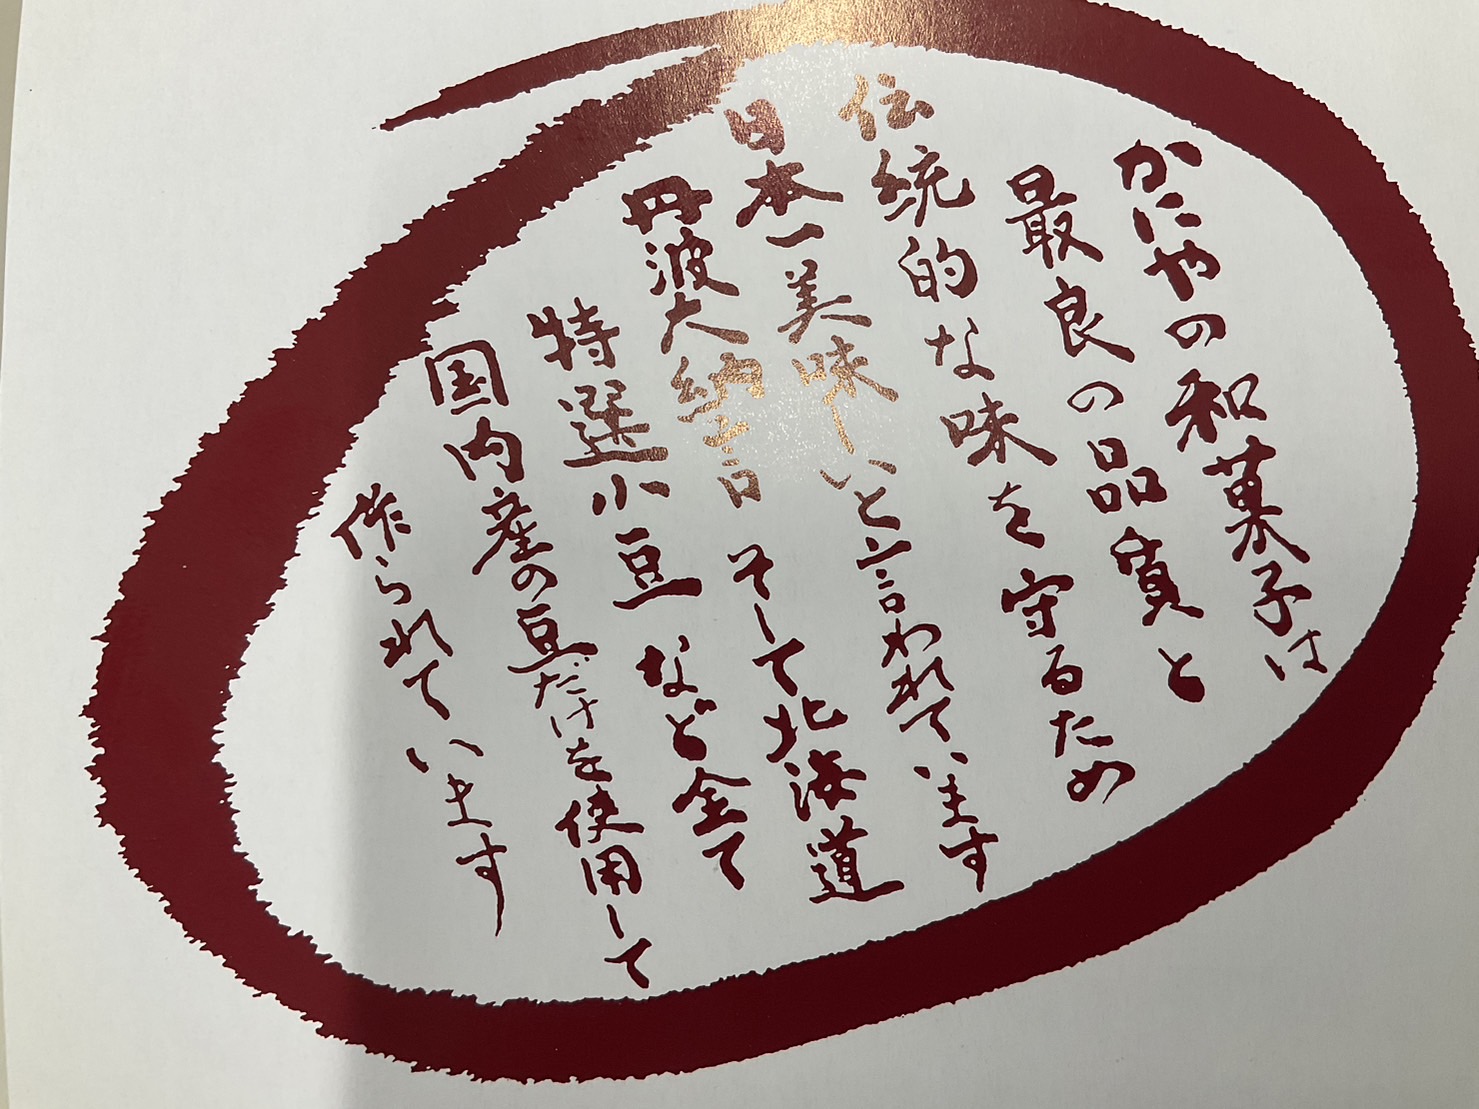 かにやの和菓子は
最良の品質と
伝統的な味を守るため
日本一美味しいと言われています
丹波大納言 そして北海道
特選小豆 など全て
国内産の豆だけを使用して
作られています